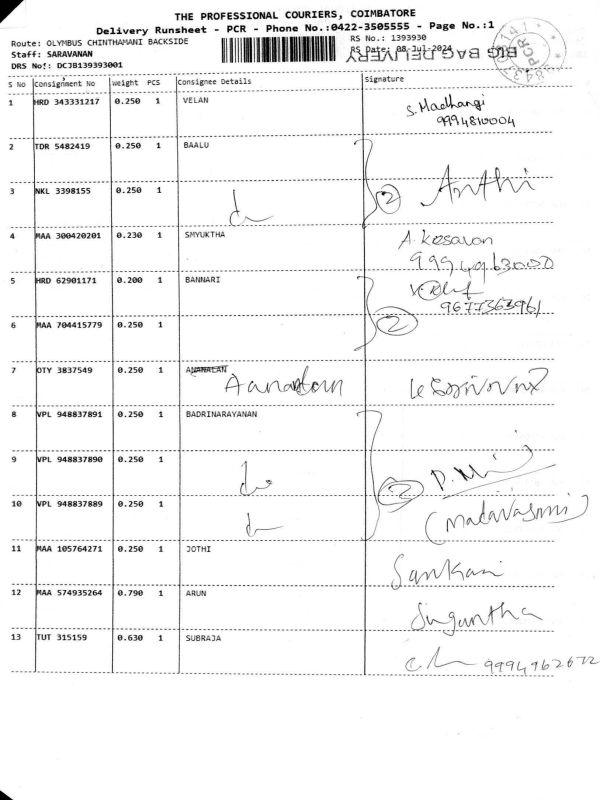 THE PROFESSIONAL COURIERS, COIMBATORE
Delivery Runsheet - PCR - Phone No.:0422-3505555 - Page No.:1
Route: OLYMBUS CHINTHAMANI BACKSIDE RS No.: 1393930
Staff: SARAVANAN RS Date: 08-Jul-2024 BIG BAG DELIVERY
DRS No.: DCJB139393001
S No Consignment No Weight PCS Consignee Details Signature
1 HRD 343331217 0.250 1 VELAN S. Madhangi
9994810004
2 TDR 5482419 0.250 1 BAALU
3 NKL 3398155 0.250 1 do 2 Anthi
4 MAA 300420201 0.230 1 SMYUKTHA A. Kesavan
5 HRD 62901171 0.200 1 BANNARI
9677363961
6 MAA 704415779 0.250 1 2
7 OTY 3837549 0.250 1 ANANALAN
8 VPL 948837891 0.250 1 BADRINARAYANAN
9 VPL 948837890 0.250 1 do
10 VPL 948837889 0.250 1 do
11 MAA 105764271 0.250 1 JOTHI
12 MAA 574935264 0.790 1 ARUN Sugantha
13 TUT 315159 0.630 1 SUBRAJA
9994962672